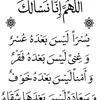 اللَّهُمَّ إِنَّا نَسْأَلُكَ
يُسْرَاً لَيْسَ بَعْدَهُ عُسْرٌ
وَغِنَىً لَيْسَ بَعْدَهُ فَقْرٌ
وَأَمْنَاً لَيْسَ بَعْدَهُ خَوْفٌ
وَسَعَادَةً لَيْسَ بَعْدَهَا شَقَاءٌ